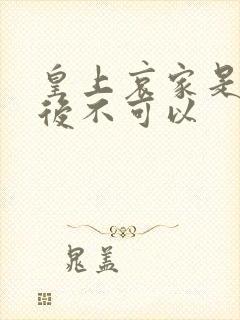 皇上哀家是
後不可以
晁盖